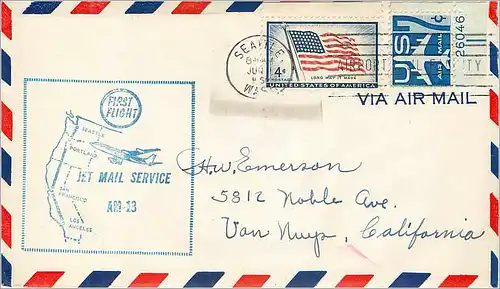 SEATTLE
WASH.
4¢
POSTAGE
LONG MAY IT WAVE
UNITED STATES OF AMERICA
US
AIR MAIL
26046
VIA AIR MAIL
FIRST
FLIGHT
SEATTLE
PORTLAND
JET MAIL SERVICE
SAN
FRANCISCO
AM-13
LOS
ANGELES
H.W. Emerson
5812 Noble Ave.
Van Nuys, California